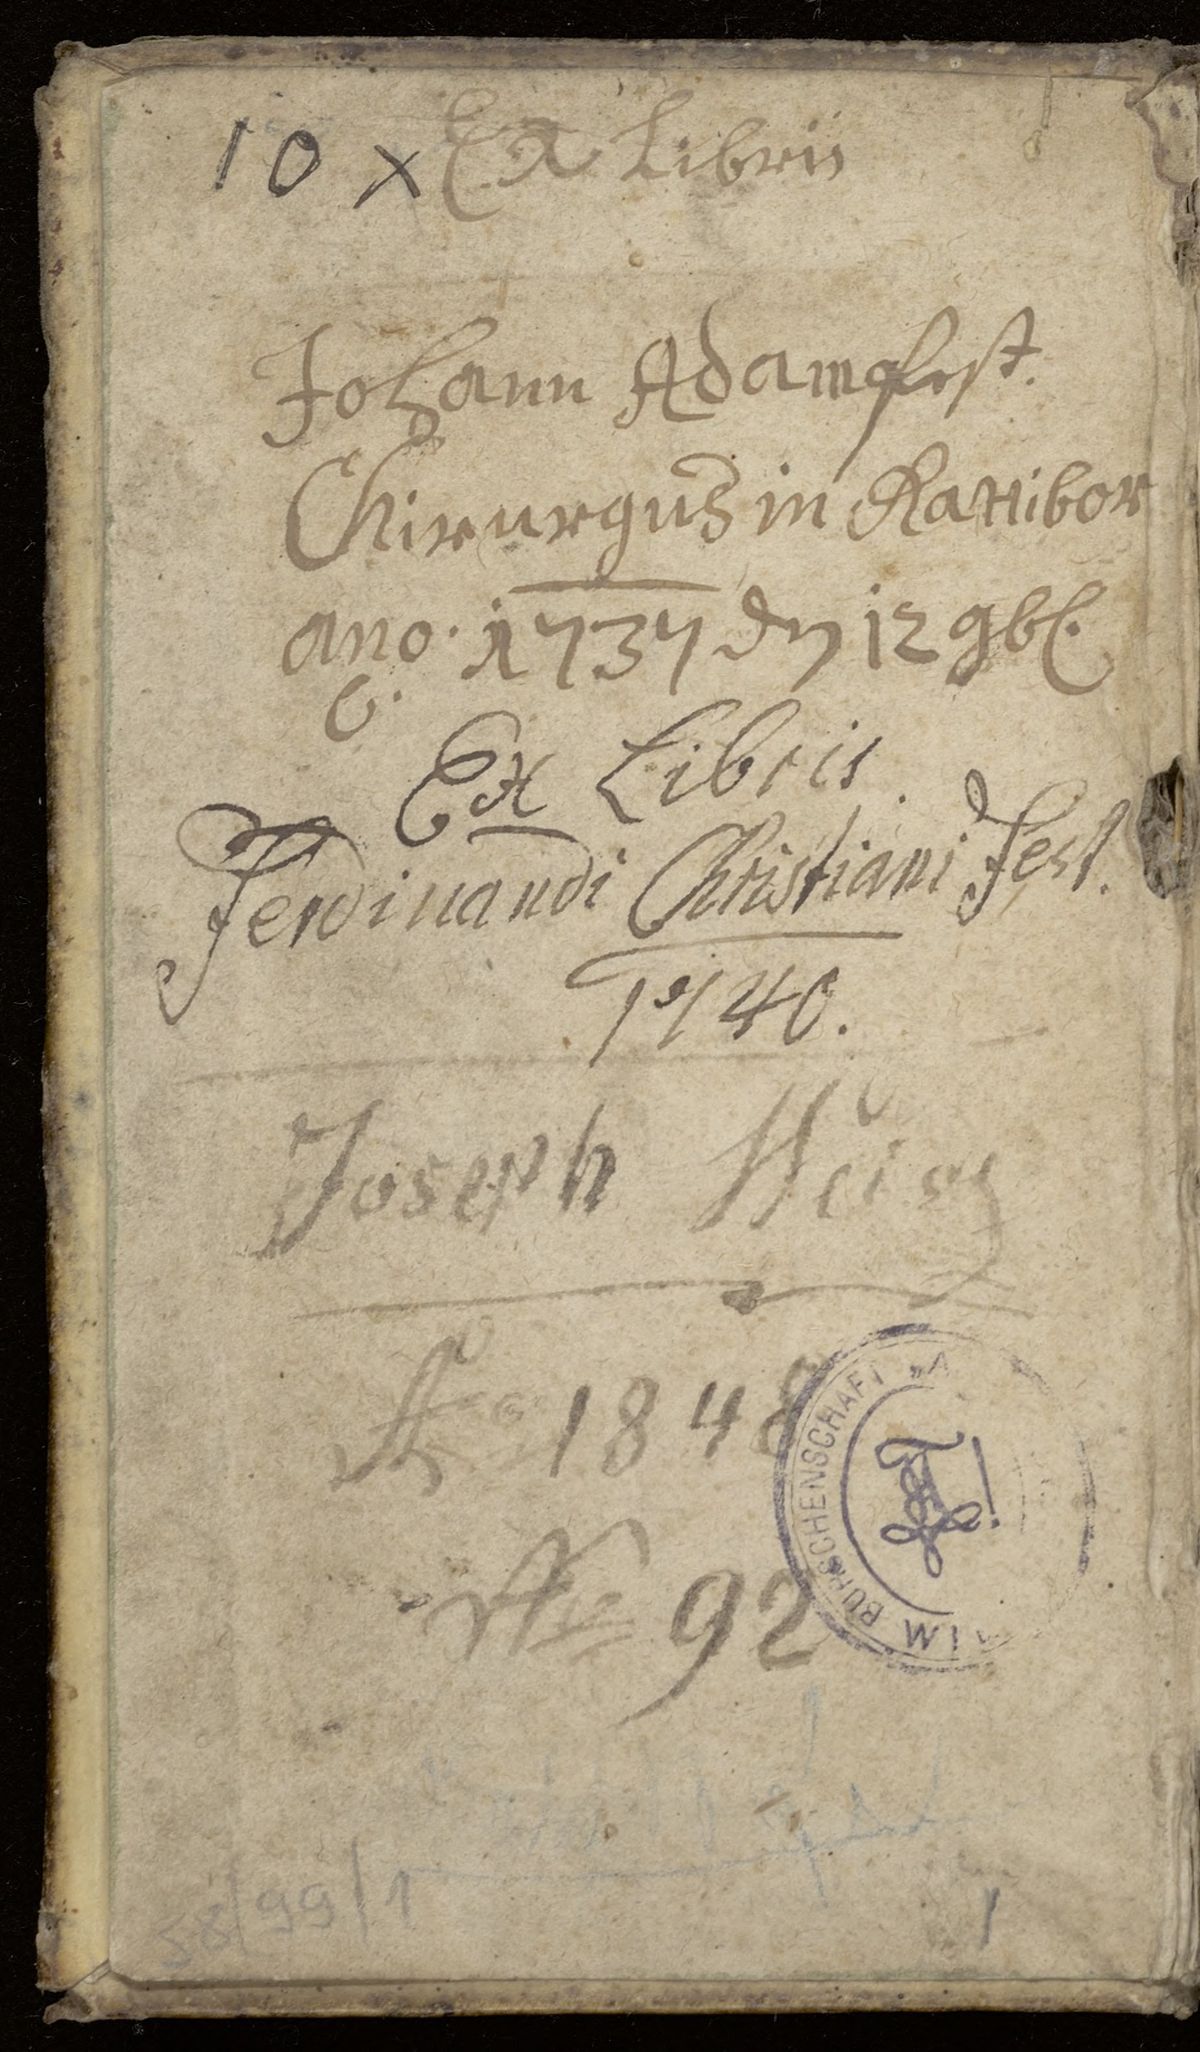 10 x Ex Libris
Johann Adam Fest.
Chirurgus in Rattibor
ano. 1737 dn 12 9bl.
Ex Libris
Ferdinandi Christiani Fest.
1740.
Joseph
1848
No 92
BURSCHENSCHAFT „A
WIM
58/99/1
1